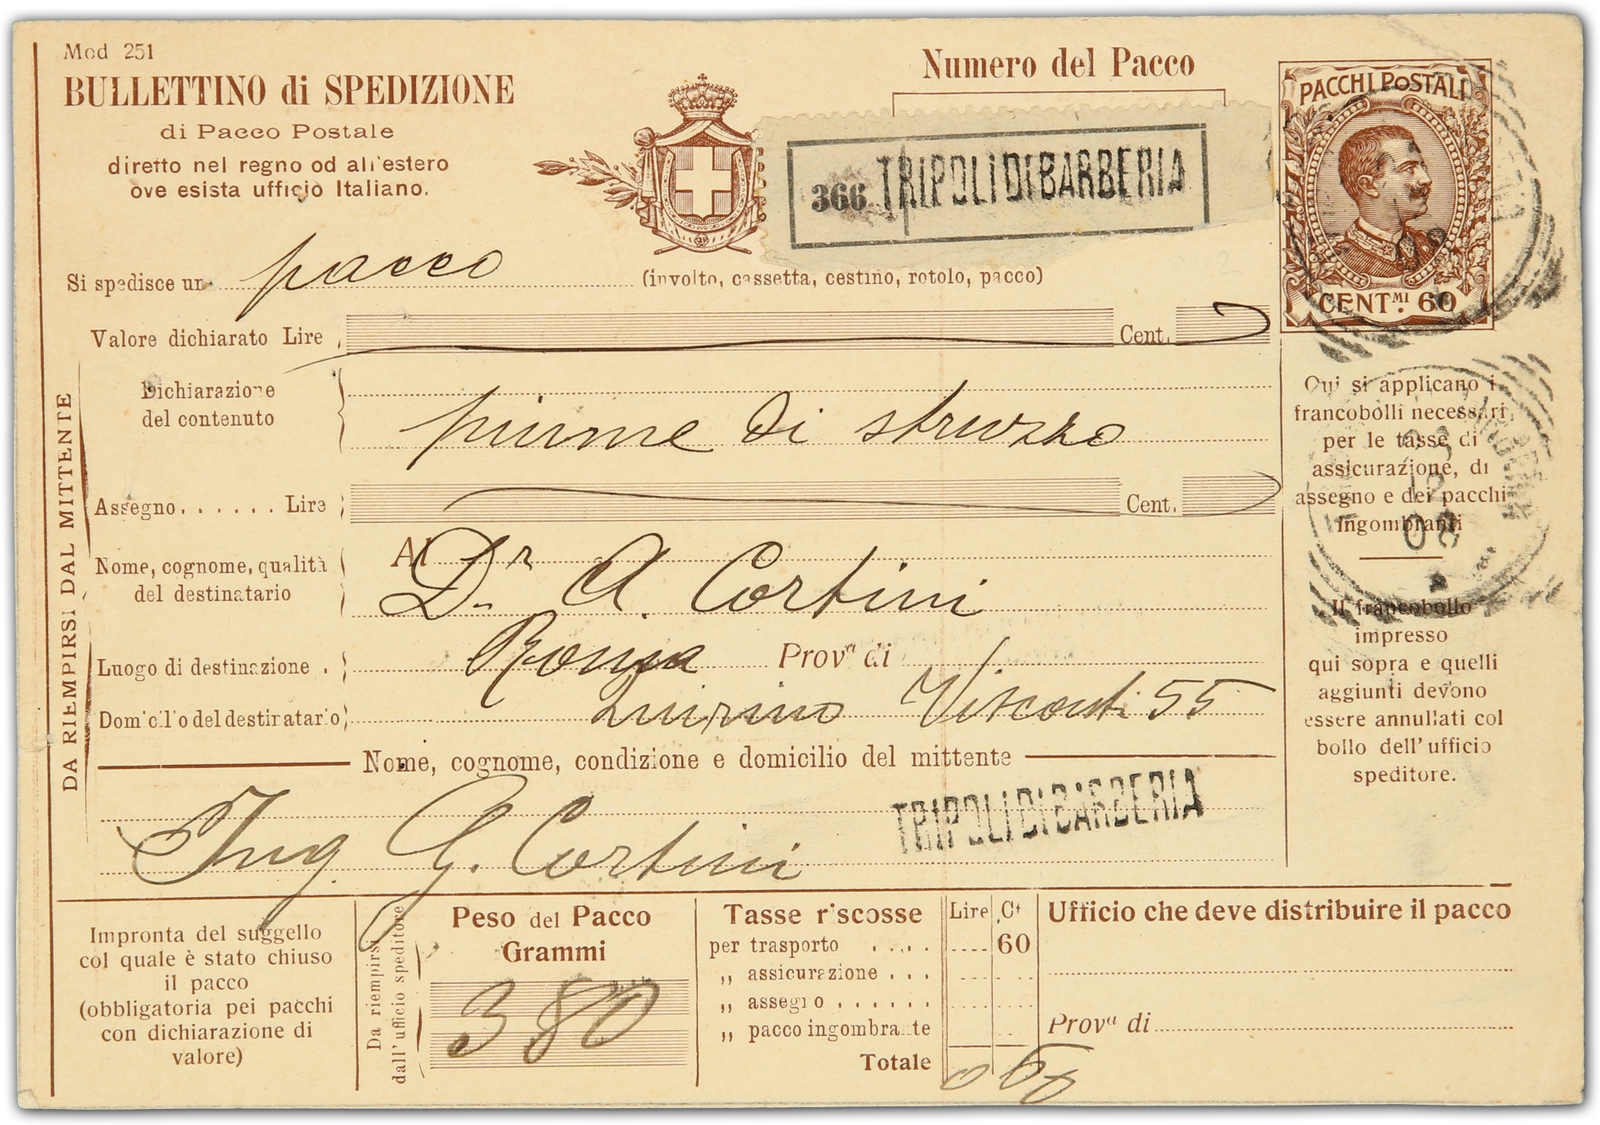 Mod 251
BULLETTINO di SPEDIZIONE
di Pacco Postale
diretto nel regno od all'estero
ove esista ufficio Italiano.
Numero del Pacco
366 TRIPOLI DI BARBERIA
PACCHI POSTALI
CENT.MI 60
Si spedisce un pacco (involto, cassetta, cestino, rotolo, pacco)
Valore dichiarato Lire Cent.
Dichiarazione
del contenuto
piume di struzzo
Assegno...... Lire Cent.
Nome, cognome, qualità
del destinatario
Al Dr A. Cortini
Luogo di destinazione . Roma Prov.a di
Domicilio del destinatario Quirino Visconti 55
Nome, cognome, condizione e domicilio del mittente
Ing. G. Cortini
TRIPOLI DI BARBERIA
DA RIEMPIRSI DAL MITTENTE
Qui si applicano i
francobolli necessari
per le tasse di
assicurazione, di
assegno e dei pacchi
ingombranti
12
08
Il francobollo
impresso
qui sopra e quelli
aggiunti devono
essere annullati col
bollo dell'ufficio
speditore.
Impronta del suggello
col quale è stato chiuso
il pacco
(obbligatoria pei pacchi
con dichiarazione di
valore)
Da riempirsi
dall'ufficio speditore
Peso del Pacco
Grammi
380
Tasse riscosse Lire Ct
per trasporto .... 60
,, assicurazione ...
,, assegno ......
,, pacco ingombrante
Totale 0 60
Ufficio che deve distribuire il pacco
Prov.a di